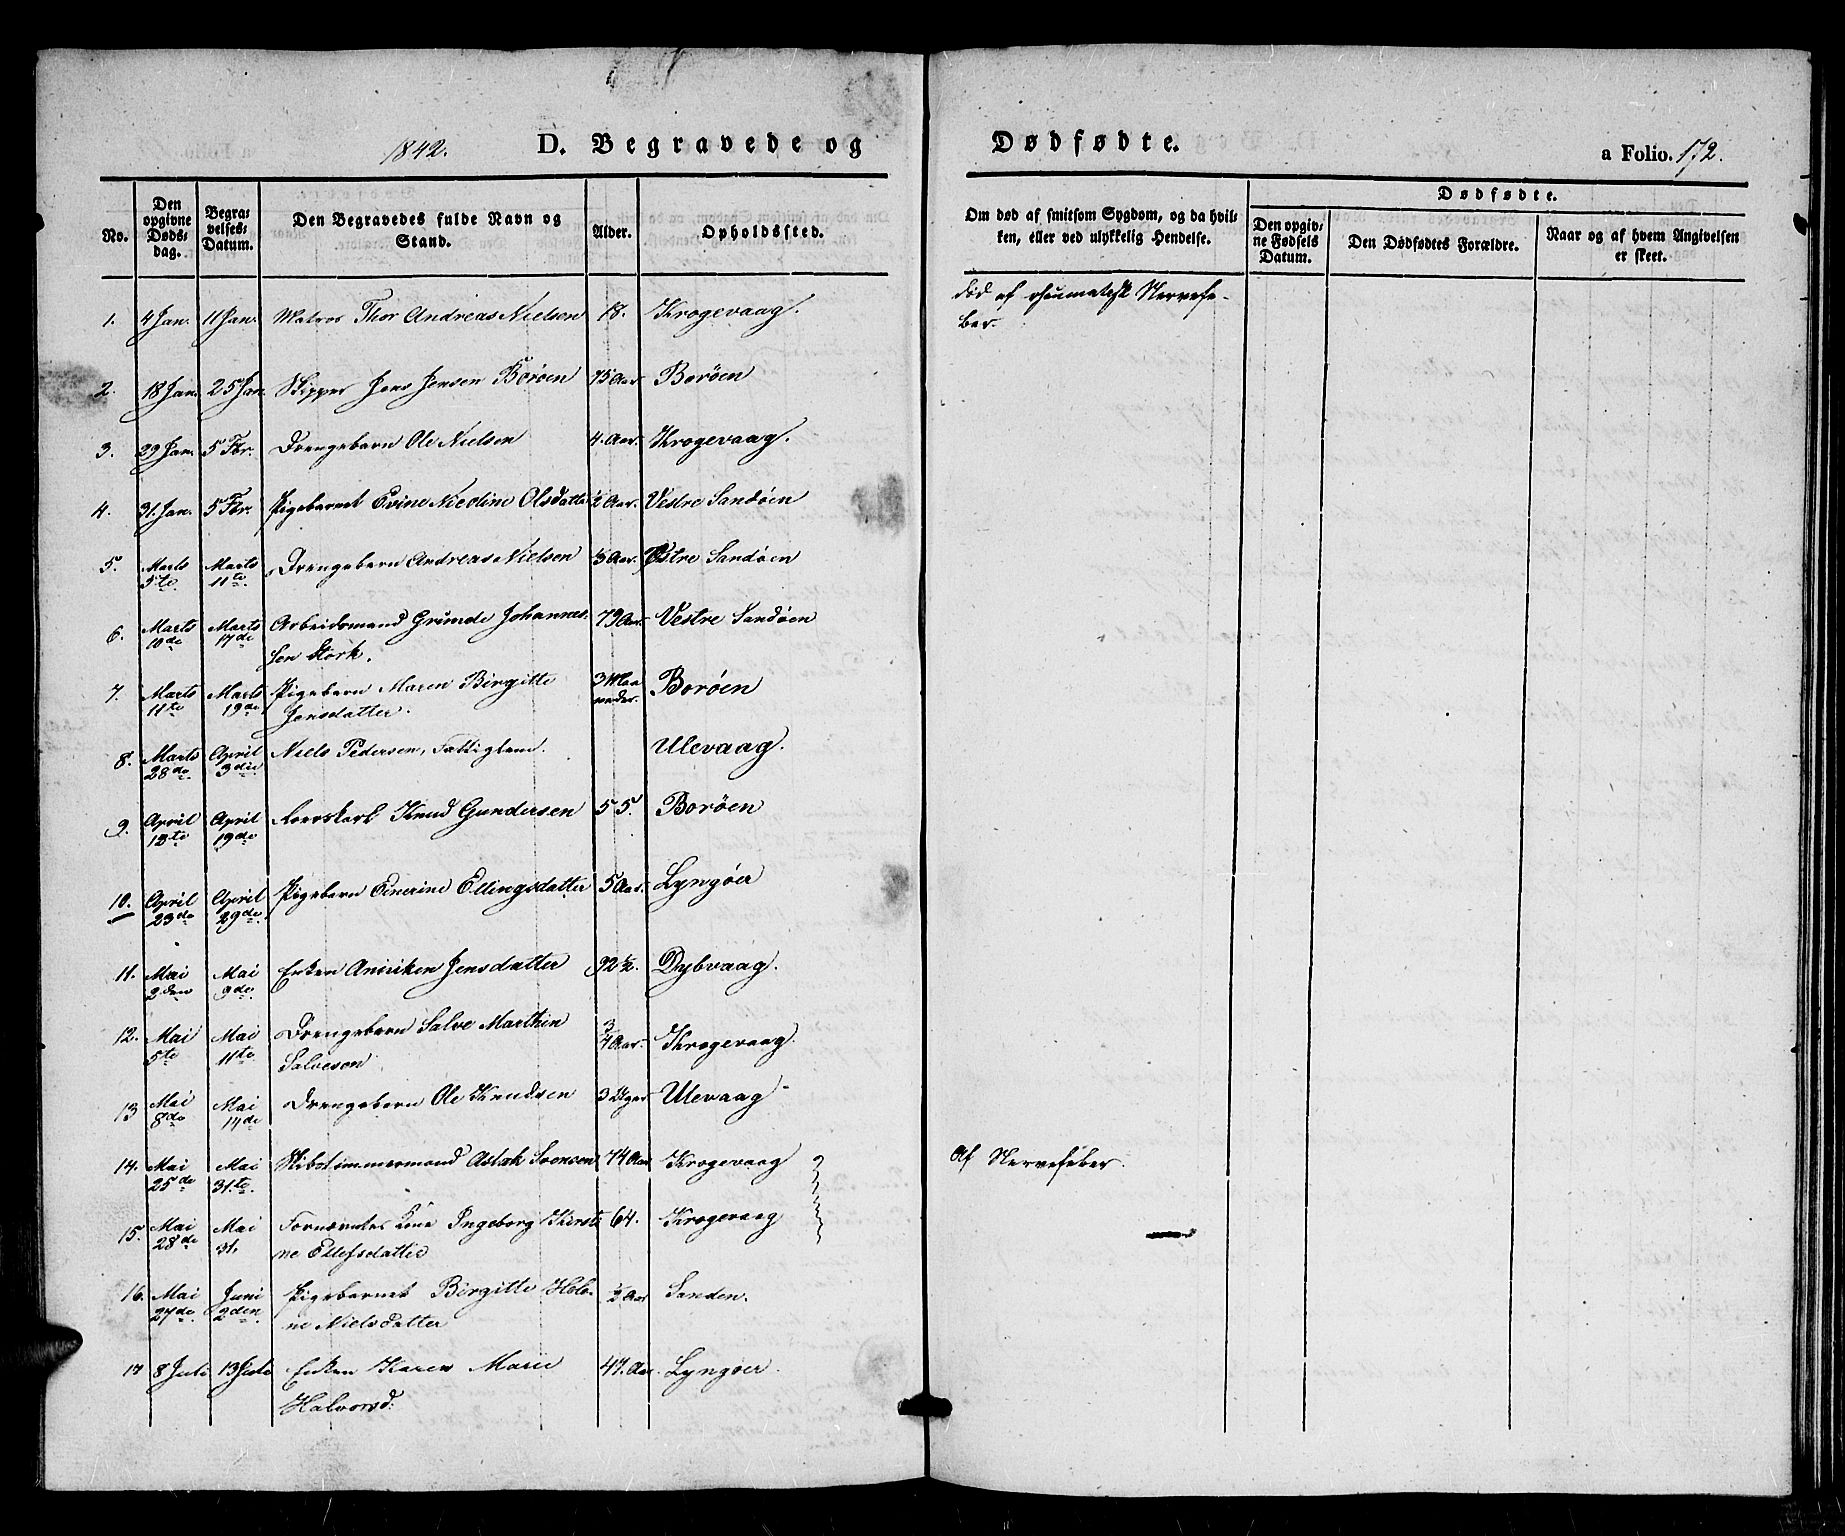 1842. D. Begravede og Dødfødte. a Folio. 172.
No. Den opgivne Dødsdag. Begravelses-Datum. Den Begravedes fulde Navn og Stand. Alder. Opholdssted. Om død af smitsom Sygdom, og da hvilken, eller ved ulykkelig Hendelse. Dødfødte. Den opgivne Fødsels Datum. Den Dødfødtes Forældre. Naar og af hvem Angivelsen er skeet.
1. 4 Jan. 11 Jan. Matros Thor Andreas Nielsen 18. Krogevaag. død af rheumatisk Nervefe-
ber.
2. 18 Jan. 25 Jan. Skipper Jens Jensen Borøen 75 Aar Borøen
3. 29 Jan. 5 Fbr. Drengebarn Ole Nielsen 4. Aar. Krogevaag.
4. 31. Jan. 5 Fbr. Pigebarnet Evine Nicoline Olsdatter ½ Aar. Vestre Sandøen
5. Marts 5te Marts 11te Drengebarn Andreas Nielsen Aar. Østre Sandøen
6. Marts 10de Marts 17de Arbeidsmand Grunde Johannes- 79 Aar. Vestre Sandøen
sen Stork.
7. Marts 11te Marts 19de Pigebarn Maren Birgitte 3 Maaneder. Borøen
Jensdatter.
8. Marts 28de April 3die Niels Pedersen, Fattiglem. Ulevaag.
9. April April 19de Knud Gundersen 55. Borøen
10. April 23de April 29de Pigebarn Enerine Ellingsdatter 5 Aar. Lyngøer
11. Mai 2den Mai 9de Enken Jensdatter 92½. Dybvaag.
12. Mai 5te Mai 11te Drengebarn Salve Marthin ¾ Aar. Krogevaag
Salveson
13 Mai 8de Mai 14de Drengebarn Ole Knudsen 3 Uger Ulevaag
14. Mai 25de Mai 31te. Skibstømmermand Aslak Svensen 74 Aar Krogevaag Af Nervefeber.
15. Mai 28de Mai 31. Fornævntes Kone Ingeborg Kirsti- 64. Krogevaag
ne Ellefsdatter
16. Mai 27de Juni 2den Pigebarnet Birgitte Hele- ½ Aar Sanden.
ne Nielsdatter
17 8 Juli 13 Juli Enken Karen Marie 47. Aar. Lyngøer.
Halvorsd: